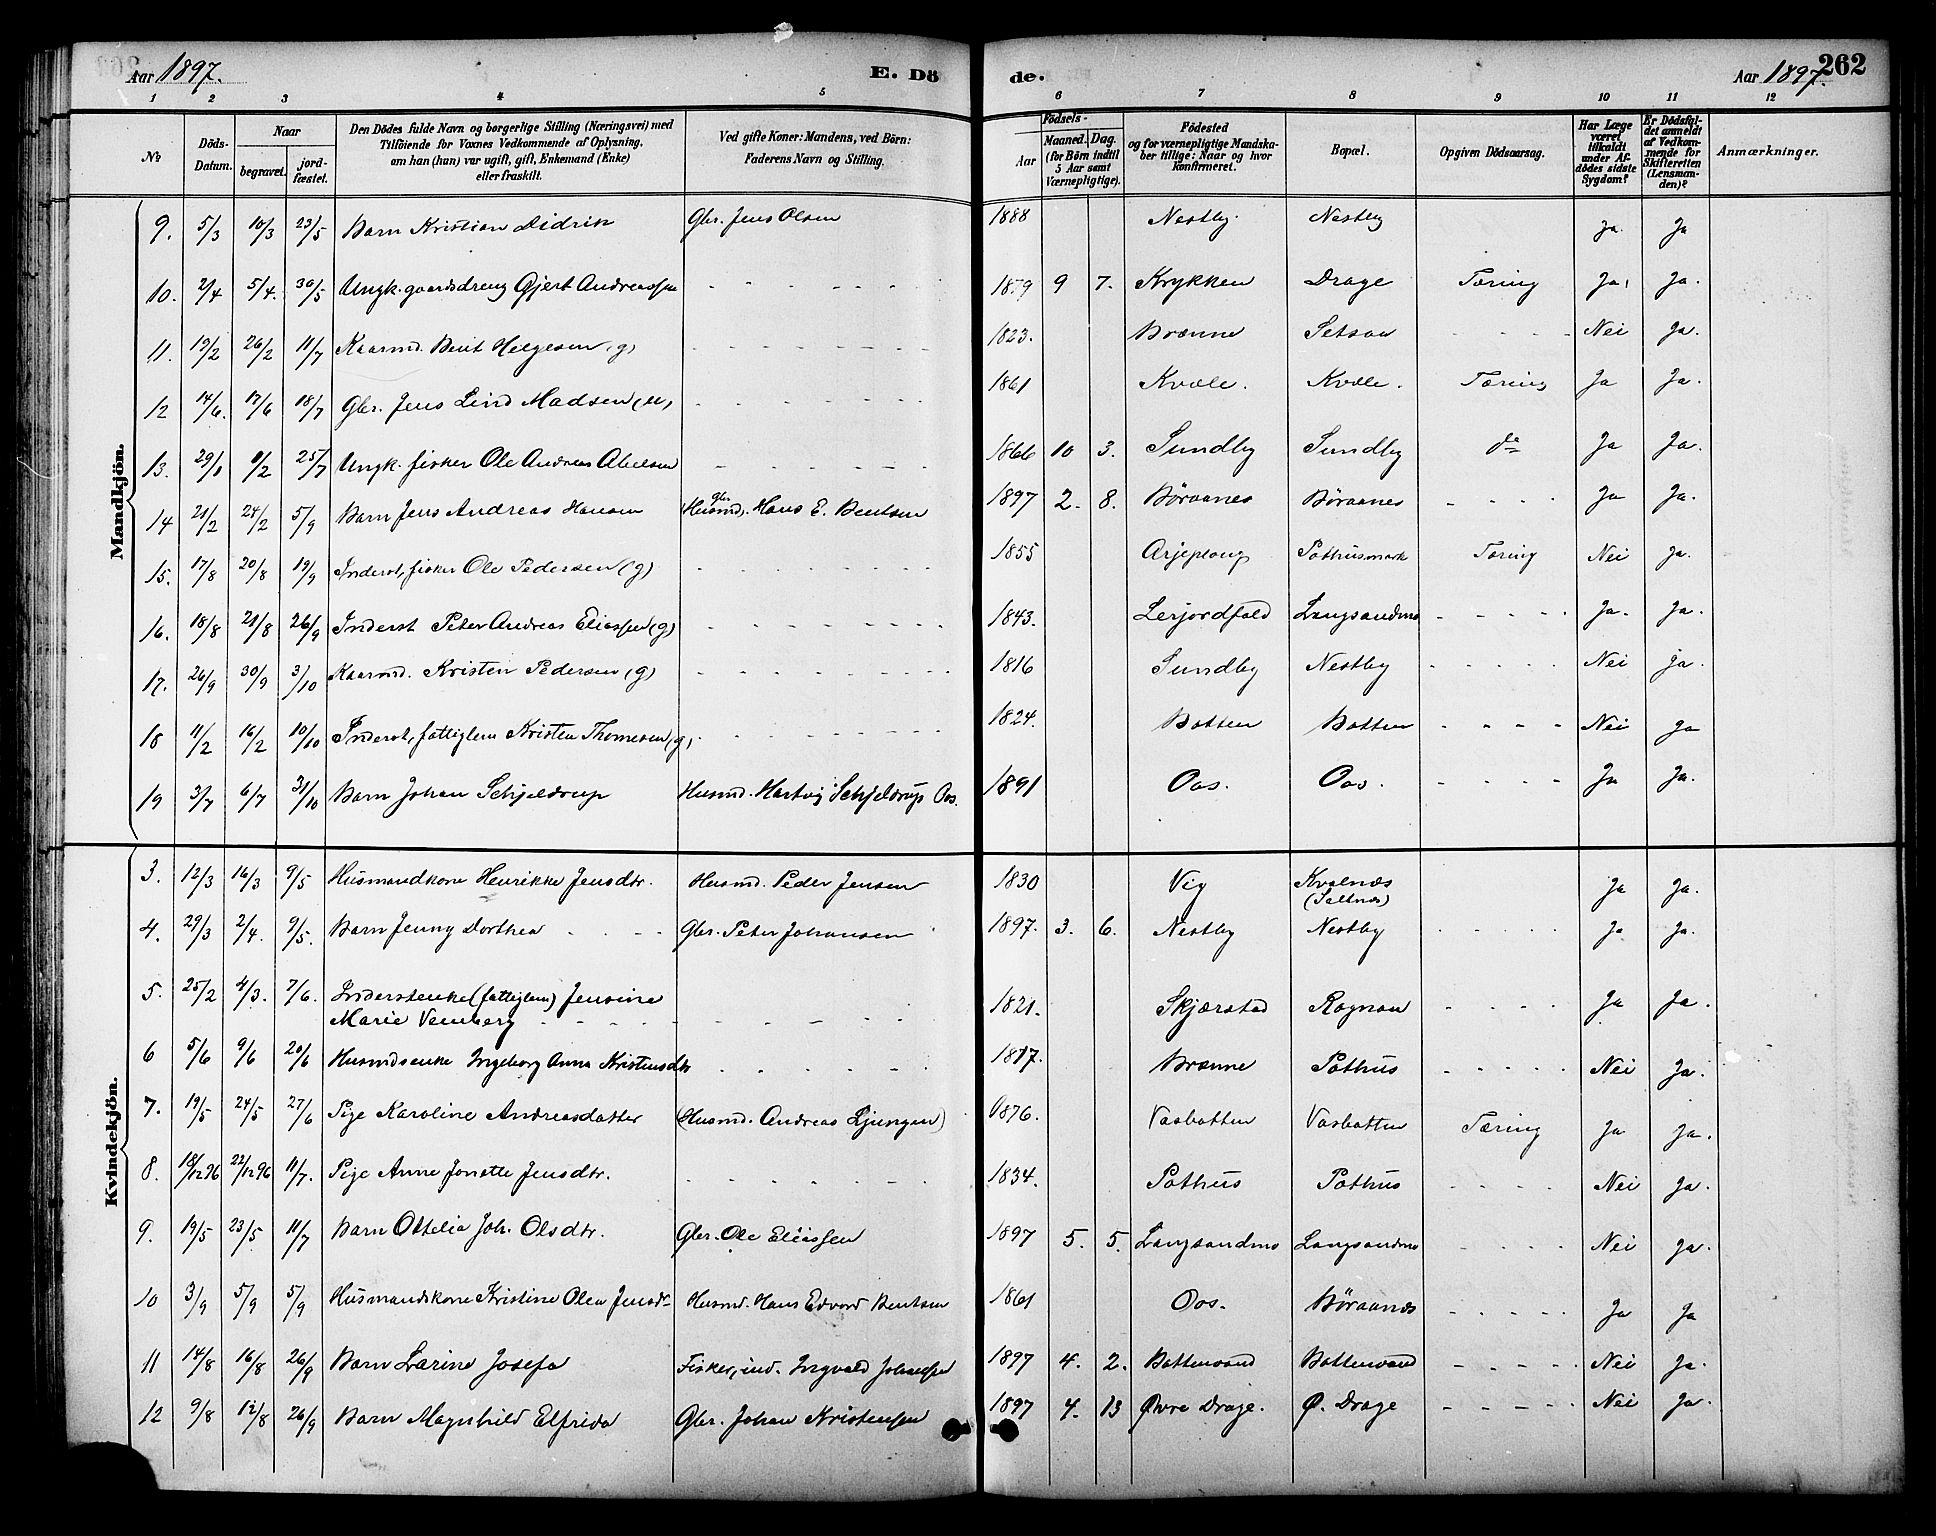 Aar 1897. E. Dö de. Aar 1897. 262
1 2 3 4 5 6 7 8 9 10 11 12
№ Döds-Datum. Naar begravet. jordfæstet. Den Dödes fulde Navn og borgerlige Stilling (Næringsvei) med Tilföiende for Voxnes Vedkommende af Oplysning, om han (hun) var ugift, gift, Enkemand (Enke) eller fraskilt. Ved gifte Koner: Mandens, ved Börn: Faderens Navn og Stilling. Födsels- Aar Maaned. Dag. (for Börn indtil 5 Aar samt Værnepligtige). Födested og for værnepligtige Mandskaber tillige: Naar og hvor konfirmeret. Bopæl. Opgiven Dödsaarsag. Har Læge været tilkaldt under Afdödes sidste Sygdom? Er Dödsfaldet anmeldt af Vedkommende for Skifteretten (Lensmanden)? Anmærkninger.
Mandkjön.
9. 5/3 10/3 23/5 Barn Kristian Didrik Gbr. Jens Olsen 1888 Nestby. Nestby Ja. Ja
10. 2/4 5/4. 30/5 Ungk. gaardsdreng Gjert Andreassen - - - - - - 1879 9 7. Krykken Drage Tæring Ja, Ja.
11. 19/2 26/2 11/7 Kaarmd. Bent Helgesen (g) - - - - - - 1823. Brænne Setsaa - - - - Nei Ja.
12 14/6. 17/6 18/7 Gbr. Jens Lind Madsen (u) - - - - - - 1861 Kvæle. Kvæle. Tæring Ja Ja.
13. 29/1 1/2 25/7 Ungk. fisker Ole Andreas Abelsen - - - - - - 1866 10 3. Sundby Sundby do Ja Ja.
14 21/2 24/2 5/9 Barn Jens Andreas Hansen (Husmd. gbr. Hans E. Bentsen 1897 2. 8. Børvanes Børvanes - - - - Ja Ja.
15. 17/8 20/8 19/9 Inderst, fisker Ole Pedersen (g) - - - - - - 1855 Arjeploug Pothusmark Tæring Nei Ja.
16. 18/8 21/8 26/9 Inderst Peter Andreas Eliassen (g) - - - - - - 1843. Lerjordfald Langsandmo - - - - Ja. Ja.
17. 26/9 30/9 3/10 Kaarmd. Kristen Pedersen (g) - - - - - - 1816 Sundby Nestby - - - - Nei Ja.
18 11/2 16/2 10/10 Inderst, fattiglem Kristen Thomesen (g) - - - - - - 1824. Botten Botten - - - - Nei Ja
19 3/7 6/7 31/10 Barn Johan Schjeldrup Husmd. Hartvig Schjeldrup Oos. 1891 Oos. Oos. - - - - Ja Ja.
Kvindekjön.
3. 12/3 16/3 9/5 Husmandkone Henrikke Jensdtr. Husmd. Peder Jensen 1830 Vig Kvalnæs (Saltnes) Ja Ja.
4. 29/3 2/4. 9/5. Barn Jenny Dorthea - - - Gbr. Peter Johansen 1897. 3. 6. Nestby Nestby - - - - Ja Ja.
5. 25/2 4/3. 7/6. Inderstenke (fattiglem) Jensine
Marie Vemberg - - - - - - 1821. Skjærstad Rognan - - - - Ja Ja.
6 5/6 9/6 20/6 Husmdsenke Ingeborg Anna Kristensdtr - - - - - - 1817. Brænne Pothus - - - - Nei Ja.
7. 19/5 24/5 27/6 Pige Karoline Andreasdatter (Husmd. Andreas Ljungen) 1876. Vasbotten Vasbotten Tæring Ja Ja.
8. 18/12 96 22/12 96 11/7. Pige Anne Jonette Jensdtr. - - - - - - 1834. Pothus Pothus - - - - Nei Ja.
9. 19/5 23/5 11/7 Barn Ottelia Joh. Olsdtr. Gbr. Ole Eliassen 1897 5. 5. Langsandmo Langsandmo - - - - Nei Ja.
10 3/9 5/9 5/9 Husmandskone Kristine Olea Jensdr Husmd. Hans Edvard Bentsen 1861 Oos. Børvanes - - - - Ja Ja
11 14/8 16/8 26/9 Barn Lærine Josefa Fisker, ind. Ingvald Johansen 1897 4. 2. Bottenvand Bottenvand - - - - Nei Ja.
12 9/8 12/8 26/9 Barn Magnhild Elfrida Gbr. Johan Kristensen 1897 4. 13 Øvre Drage. Ø. Drage - - - - Nei Ja.